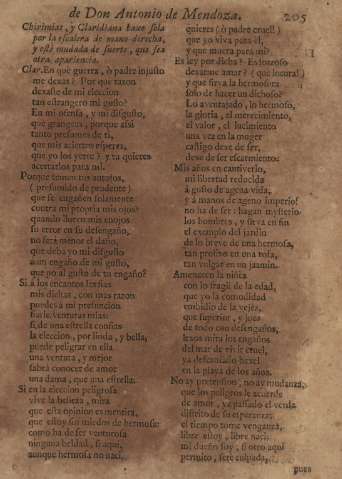 de Don Antonio de Mendoza. 205
Chirimias, y Claridiana hace sola
por la escalera de mano derecha,
y està mudada de suerte, que sea
otra apariencia.
Clar. En què guerra, ò padre injusto
me dexas? Por què razon
dexaste de mi eleccion
tan estrangero mi gusto?
En mi ofensa, y mi disgusto,
què grangeas, porque assi
tanto presumes de ti,
que mis aciertos esperes,
que yo los yerre? y tu quieres
acertarlos para mi.
Porque temen tus antojos,
(presumido de prudente)
que se engañen solamente
contra mi propria mis ojos?
quando lloren mis enojos
su error en su desengaño,
no serà menor el daño,
que deba yo mi disgusto
aun engaño de mi gusto,
que no al gusto de tu engaño?
Si à los encantos fias
mis dichas, con mas razon
puedes à mi presuncion
fiarle venturas mias:
si de una estrella confias
la eleccion, por linda, y bella,
puede peligrar en ella
una ventura, y mejor
sabrà conocer de amor
una dama, que una estrella.
Si en la eleccion peligrosa
vive la belleza, mira
que esta opinion es mentira,
que estoy sin miedos de hermosa:
como ha de ser venturosa
ninguna beldad, si aqui,
aunque hermosa no naci,
quieres (ò padre cruel!)
que yo viva para èl,
y que muera para mi?
Es ley por dicha? Es forzoso
desatine amar? (què locura!)
y que sirva la hermosura
solo de hacer un dichoso?
Lo aventajado, lo hermoso,
la gloria, el merecimiento,
el valor, el lucimiento
una vez en la muger
castigo dexe de ser,
dexe de ser escarmiento.
Mis años en cautiverio,
mi libertad reducida
à gusto de agena vida,
y à manos de ageno imperio!
no ha de ser: hagan mysterio
los hombres, y sirva en fin
el exemplo del jardin
de lo breve de una hermosa,
tan prolixo en una rosa,
tan vulgar en un jazmin.
Amenacen la niñez
con lo fragil de la edad,
que yo la comodidad
embidio de la vejez,
que superior, y juez
de todo con desengaños,
lexos mira los engaños
del mar de vivir cruel,
ya desarmado baxel
en la playa de los años.
No ay pretension, no ay mudanza,
que los peligros le acuerde
de amor, ya passado el verde
distrito de su esperanza:
el tiempo tome venganza,
libre estoy, libre naci:
mi dueño soy; si otro aqui
permito, serè culpada,
pues